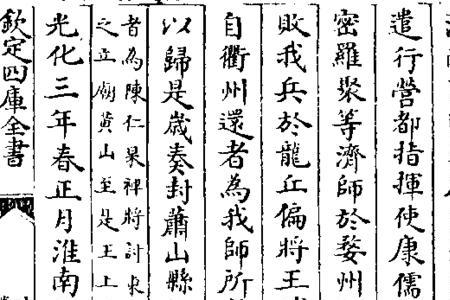 遣行營都指揮使康儒
密羅聚等濟師於婺州
敗我兵於龍丘偏將王
自衢州還者為我師所
以歸是歲奏封蕭山縣
者為陳仁杲裨將討東
之立廟黃山至是王上
光化三年春正月淮南
欽定四庫全書